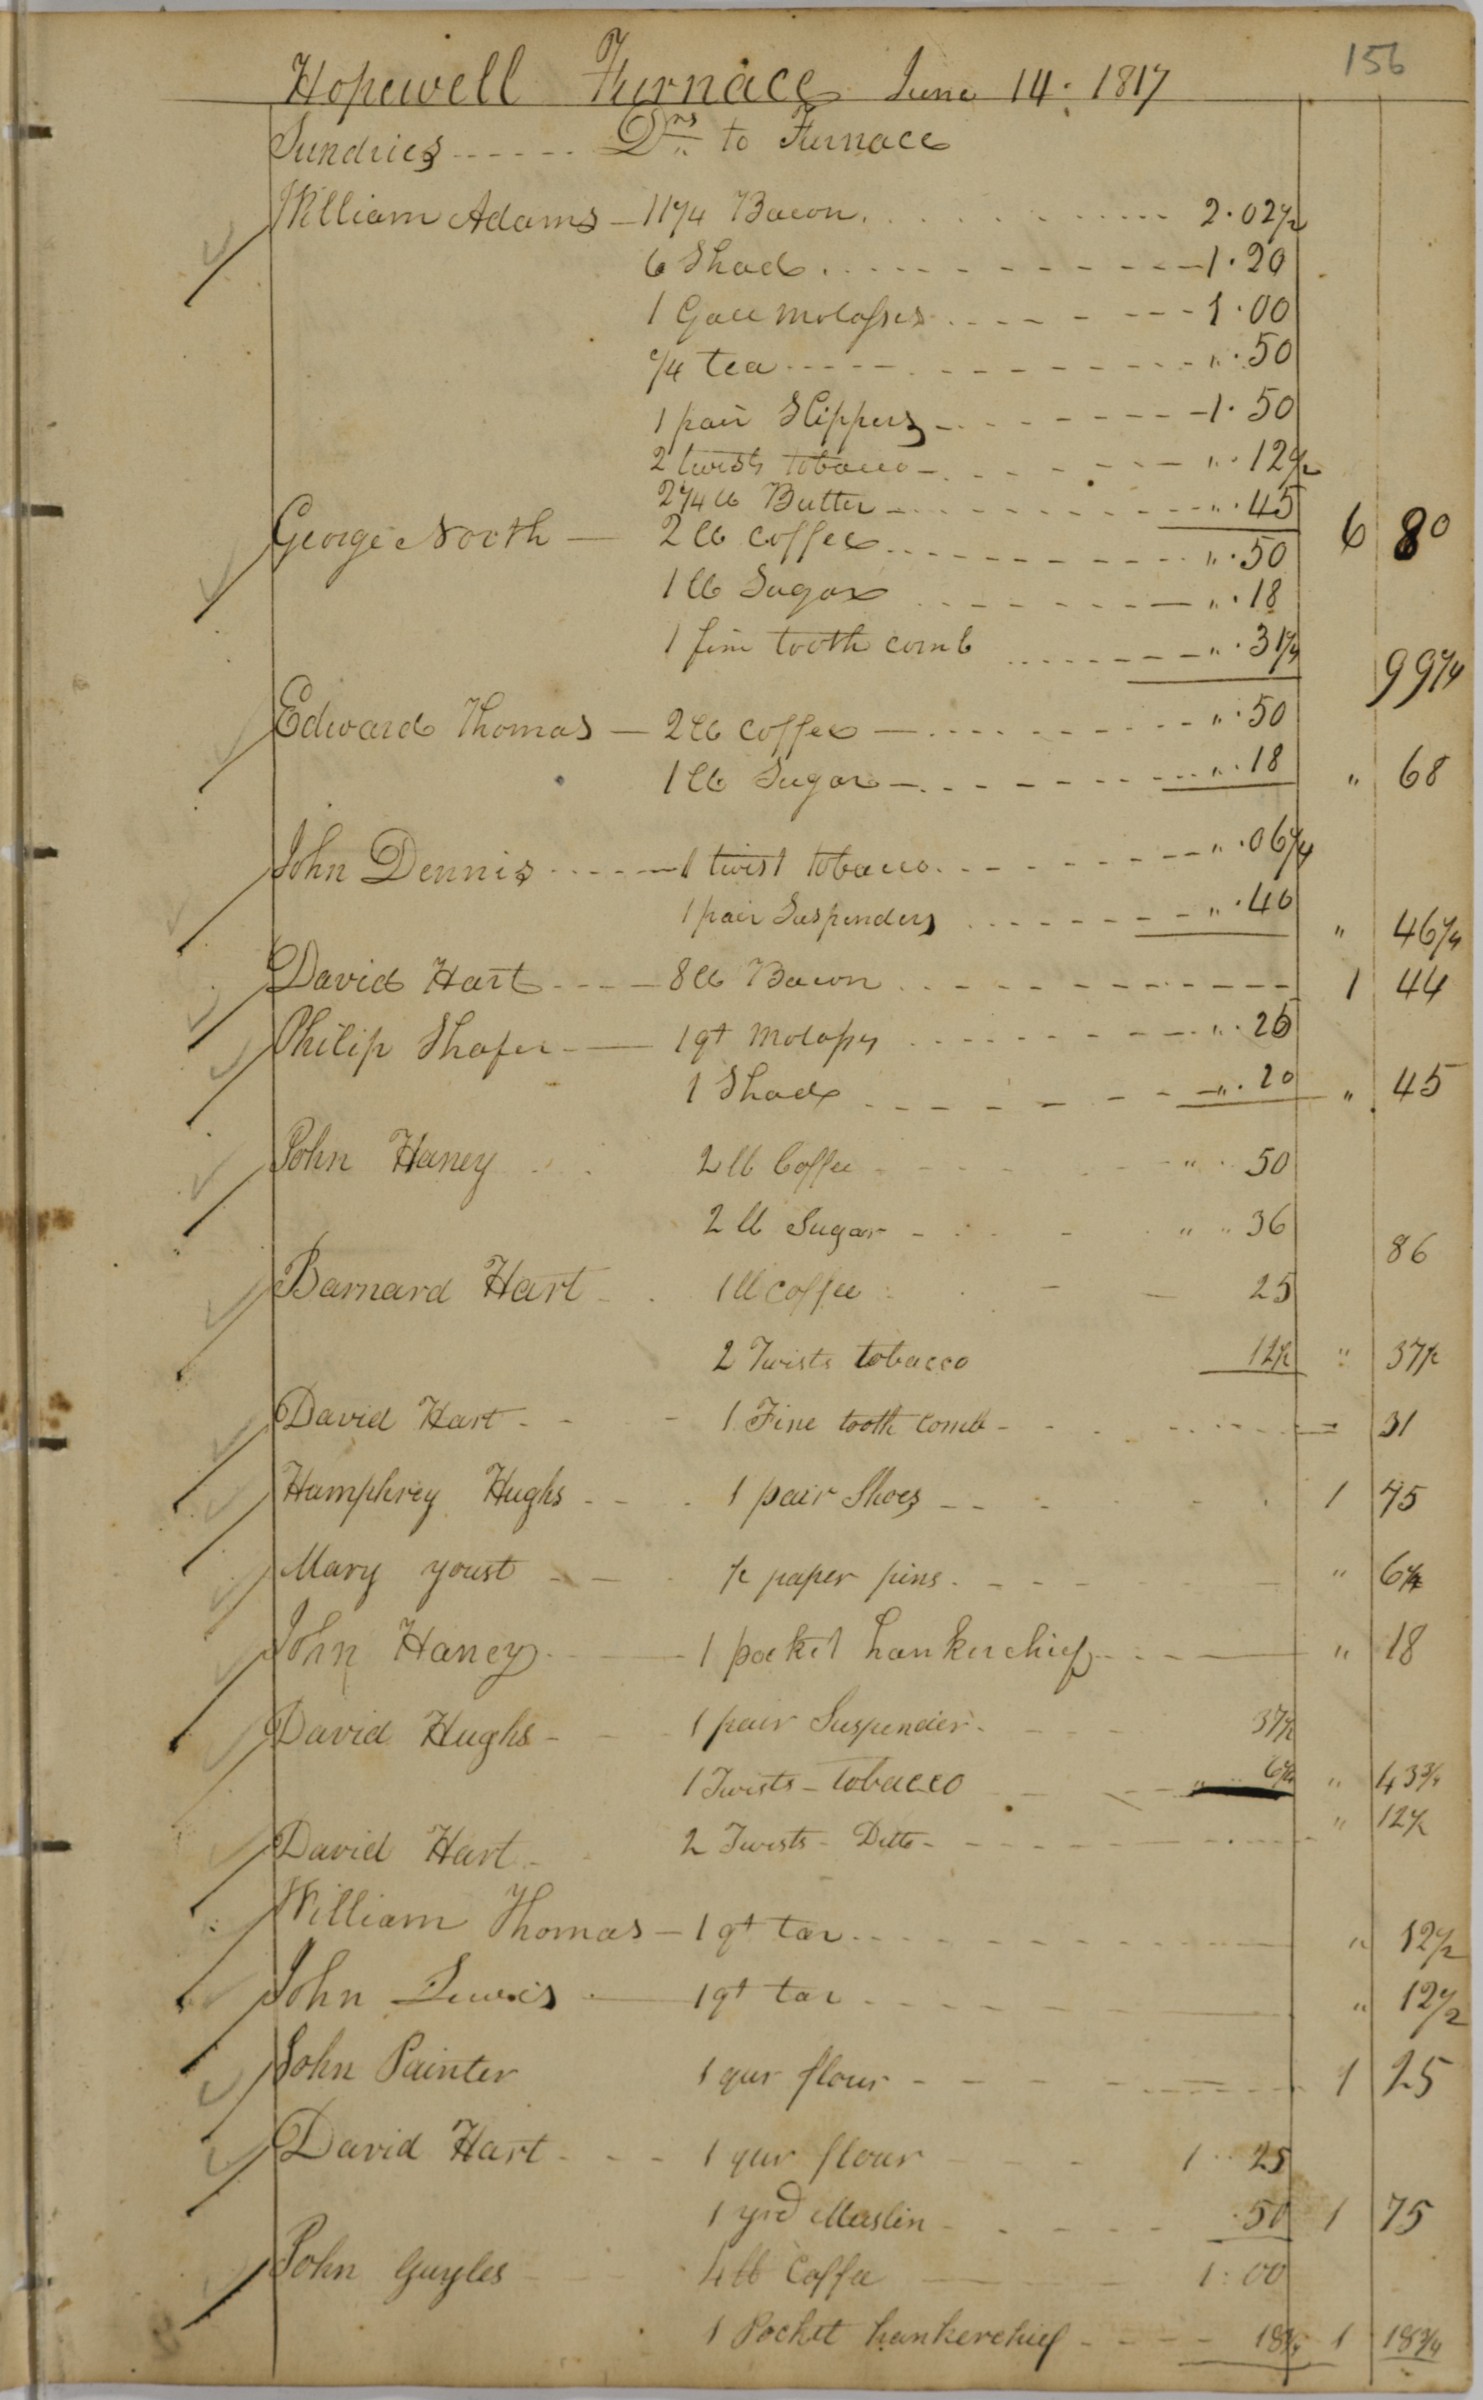 156
Hopewell Furnace June 14. 1817
Sundries Drs to Furnace
William Adams 11 1/4 Bacon 2.02 1/2
6 Shad 1.20
1 Gall molasses 1.00
1/4 tea ".50
1 pair Slippers 1.50
2 twists tobacco ".12 1/2
2 1/4 lb Butter ".45 6 80
George North 2 lb coffee ".50
1 lb Sugar ".18
1 fine tooth comb ".31 1/4 99 1/4
Edward Thomas 2 lb coffee ".50
1 lb Sugar ".18 " 68
John Dennis 1 twist tobacco ".06 1/4
1 pair Suspenders ".40 " 46 1/4
David Hart 8 lb Bacon 1 44
Philip Shafer 1 qt molasses ".25
1 Shad ".20 " 45
John Haney 2 lb Coffee " 50
2 lb Sugar " 36 86
Barnard Hart 1 lb coffee 25
2 Twists tobacco 12 1/2 " 37 1/2
David Hart 1 Fine tooth comb 31
Humphrey Hughs 1 pair Shoes 1 75
Mary Youst 1/2 paper pins " 6 1/4
John Haney 1 pocket hankerchief " 18
David Hughs 1 pair Suspender 37 1/2
1 Twists tobacco " 6 1/4 " 43 3/4
David Hart 2 Twists Ditto " 12 1/2
William Thomas 1 qt tar " 12 1/2
John Lewis 1 qt tar " 12 1/2
John Painter 1 qur flour 1 25
David Hart 1 qur flour 1 25
1 yrd Muslin .50 1 75
John Guyles 4 lb Coffee 1:00
1 Pocket hankerchief 18 3/4 1 18 3/4